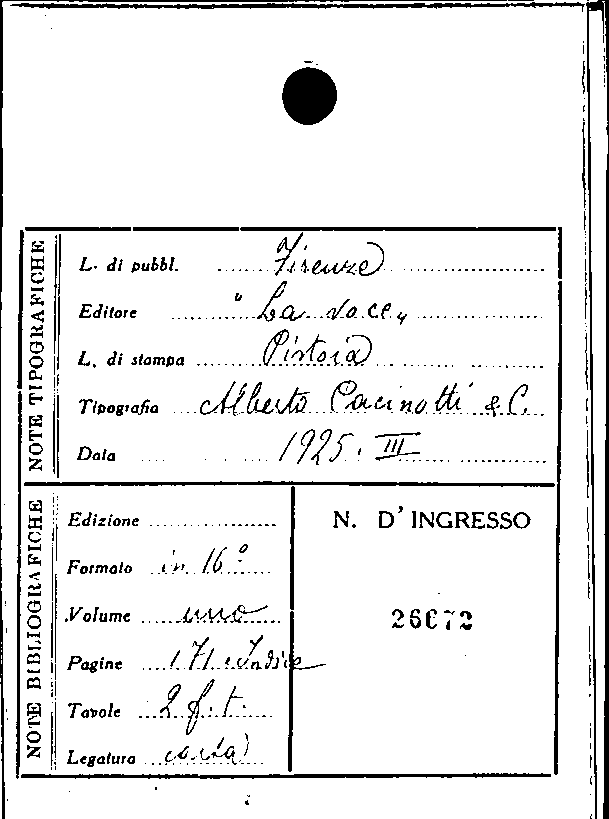 NOTE TIPOGRAFICHE
L. di pubbl. Firenze
Editore "La Voce„
L. di stampa Pistoia
Tipografia Alberto Pacinotti & C.
Data 1925. III
NOTE BIBLIOGRAFICHE
Edizione
Formato in 16°
Volume uno
Pagine 171 e Indice
Tavole 2 f. t.
Legatura carta
N. D'INGRESSO
26672